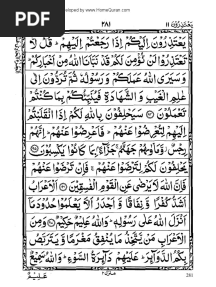 PDF
Developed by www.HomeQuran.com
يَعْتَذِرُوْنَ ١١
٢٨١
يَعْتَذِرُوْنَ اِلَيْكُمْ اِذَا رَجَعْتُمْ اِلَيْهِمْ ؕ قُلْ لَّا
تَعْتَذِرُوْا لَنْ نُّؤْمِنَ لَكُمْ قَدْ نَبَّاَنَا اللّٰهُ مِنْ اَخْبَارِكُمْ ؕ
وَسَيَرَى اللّٰهُ عَمَلَكُمْ وَرَسُوْلُهٗ ثُمَّ تُرَدُّوْنَ اِلٰى
عٰلِمِ الْغَيْبِ وَالشَّهَادَةِ فَيُنَبِّئُكُمْ بِمَا كُنْتُمْ
تَعْمَلُوْنَ ﴿٩٤﴾ سَيَحْلِفُوْنَ بِاللّٰهِ لَكُمْ اِذَا انْقَلَبْتُمْ
اِلَيْهِمْ لِتُعْرِضُوْا عَنْهُمْ ؕ فَاَعْرِضُوْا عَنْهُمْ ؕ اِنَّهُمْ
رِجْسٌ ۫ وَّمَاْوٰىهُمْ جَهَنَّمُ ۚ جَزَآءًۢ بِمَا كَانُوْا يَكْسِبُوْنَ ﴿٩٥﴾
يَحْلِفُوْنَ لَكُمْ لِتَرْضَوْا عَنْهُمْ ۚ فَاِنْ تَرْضَوْا عَنْهُمْ
فَاِنَّ اللّٰهَ لَا يَرْضٰى عَنِ الْقَوْمِ الْفٰسِقِيْنَ ﴿٩٦﴾ اَلْاَعْرَابُ
اَشَدُّ كُفْرًا وَّنِفَاقًا وَّاَجْدَرُ اَلَّا يَعْلَمُوْا حُدُوْدَ مَاۤ
اَنْزَلَ اللّٰهُ عَلٰى رَسُوْلِهٖ ؕ وَاللّٰهُ عَلِيْمٌ حَكِيْمٌ ﴿٩٧﴾ وَمِنَ
الْاَعْرَابِ مَنْ يَّتَّخِذُ مَا يُنْفِقُ مَغْرَمًا وَّيَتَرَبَّصُ
بِكُمُ الدَّوَآئِرَ ؕ عَلَيْهِمْ دَآئِرَةُ السَّوْءِ ؕ وَاللّٰهُ سَمِيْعٌ
عَلِيْمٌ
منزل ٢
281